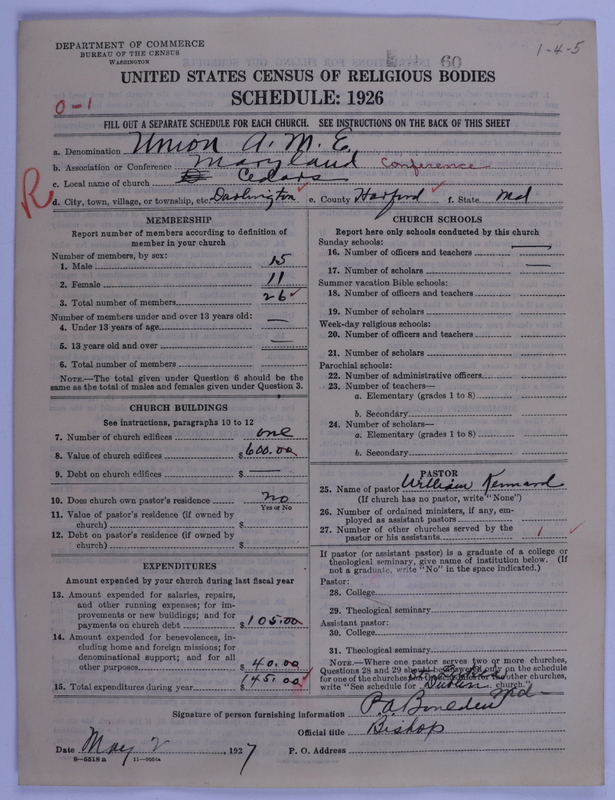 DEPARTMENT OF COMMERCE
BUREAU OF THE CENSUS
WASHINGTON
60
1-4-5
UNITED STATES CENSUS OF RELIGIOUS BODIES
SCHEDULE: 1926
0-1
FILL OUT A SEPARATE SCHEDULE FOR EACH CHURCH. SEE INSTRUCTIONS ON THE BACK OF THIS SHEET
a. Denomination Union A. M. E.
b. Association or Conference Maryland Conference
c. Local name of church Cedars
R
d. City, town, village, or township, etc. Darlington e. County Harford f. State Md
MEMBERSHIP
Report number of members according to definition of
member in your church
Number of members, by sex:
1. Male 15
2. Female 11
3. Total number of members 26
Number of members under and over 13 years old:
4. Under 13 years of age —
5. 13 years old and over —
6. Total number of members
NOTE.—The total given under Question 6 should be
same as the total of males and females given under Question 3.
CHURCH BUILDINGS
See instructions, paragraphs 10 to 12
7. Number of church edifices one
8. Value of church edifices $600.00
9. Debt on church edifices $ —
10. Does church own pastor's residence no
Yes or No
11. Value of pastor's residence (if owned by
church) $
12. Debt on pastor's residence (if owned by
church) $
EXPENDITURES
Amount expended by your church during last fiscal year
13. Amount expended for salaries, repairs,
and other running expenses; for im-
provements or new buildings; and for
payments on church debt $105.00
14. Amount expended for benevolences, in-
cluding home and foreign missions; for
denominational support; and for all
other purposes $40.00
15. Total expenditures during year $145.00
CHURCH SCHOOLS
Report here only schools conducted by this church
Sunday schools:
16. Number of officers and teachers —
17. Number of scholars —
Summer vacation Bible schools:
18. Number of officers and teachers
19. Number of scholars
Week-day religious schools:
20. Number of officers and teachers
21. Number of scholars
Parochial schools:
22. Number of administrative officers
23. Number of teachers—
a. Elementary (grades 1 to 8)
b. Secondary
24. Number of scholars—
a. Elementary (grades 1 to 8)
b. Secondary
PASTOR
25. Name of pastor William Kennard
(If church has no pastor, write "None")
26. Number of ordained ministers, if any, em-
ployed as assistant pastors
27. Number of other churches served by the
pastor or his assistants 1
If pastor (or assistant pastor) is a graduate of a college or
theological seminary, give name of institution below. (If
not a graduate, write "No" in the space indicated.)
Pastor:
28. College
29. Theological seminary
Assistant pastor:
30. College
31. Theological seminary
NOTE.—Where one pastor serves two or more churches,
Questions 28 and 29 should be answered only on the schedule
for one of the churches. On schedules for other churches,
write "See schedule for Dublin Md church."
Signature of person furnishing information P. A. Boulden
Official title Bishop
Date May 2, 1927 P. O. Address
11—9054a